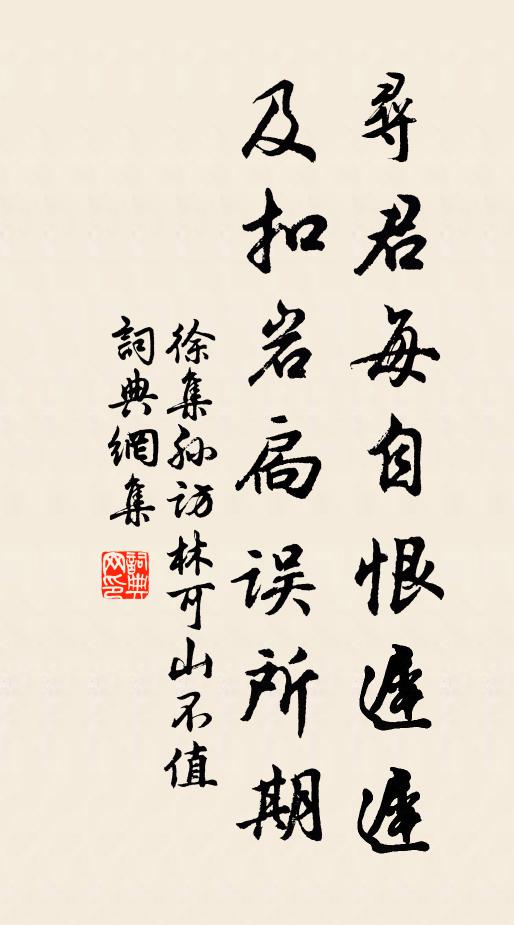 尋君每自恨遲遲
及扣岩扃误所期
徐集孙访林可山不值
詞典網集
詞典网印